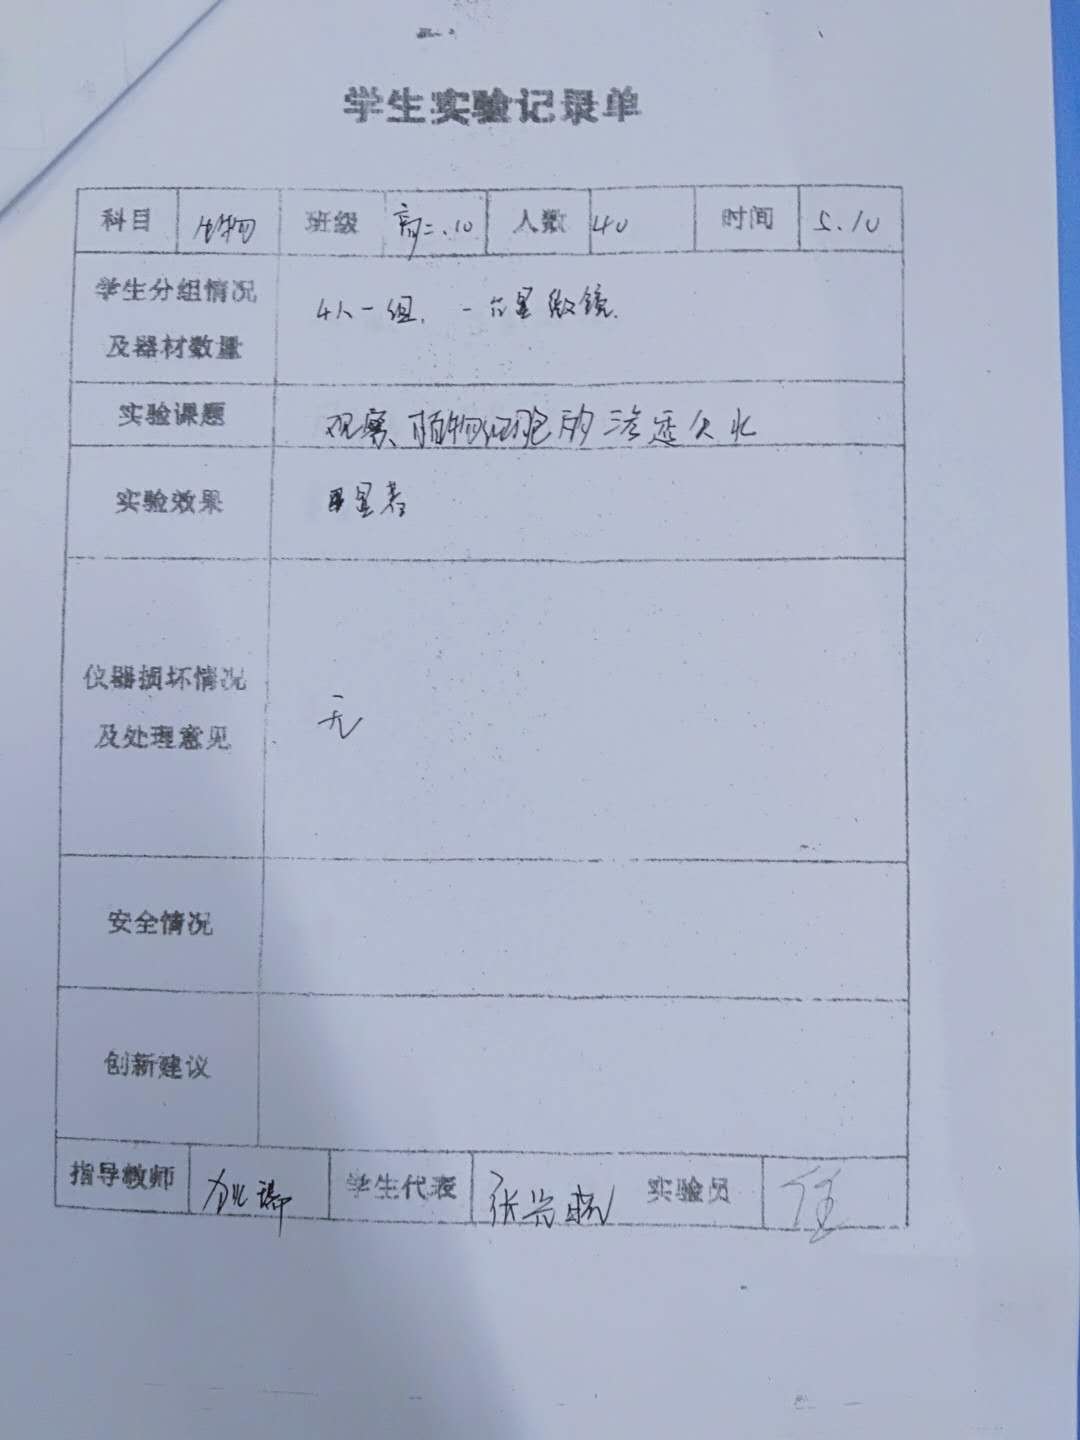 学生实验记录单
科目 生物 班级 高二.10 人数 40 时间 5.10
学生分组情况及器材数量 4人一组. 一台显微镜.
实验课题 观察植物细胞的渗透失水
实验效果 显著
仪器损坏情况及处理意见 无
安全情况
创新建议
指导教师 学生代表 张兴 实验员 任